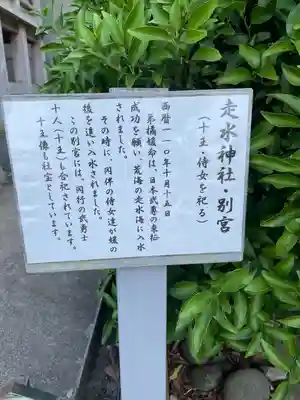 走水神社・別宮
（十王・侍女を祀る）
西暦一一〇年十月十五日
弟橘媛命は、日本武尊の東征
成功を願い、荒海の走水海に入水
されました。
その時に、同伴の侍女達が媛の
後を追い入水されました。
この別宮には、同行の武勇士
十人（十主）も合祀されています。
十王像も社宝としています。